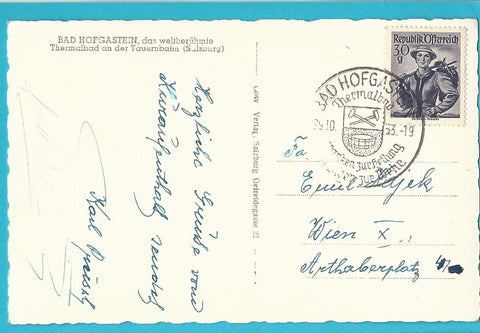 BAD HOFGASTEIN, das weltberühmte
Thermalbad an der Tauernbahn (Salzburg)
Herzliche Grüße vom
Kuraufenthalt sendet
Karl
Verlag, Salzburg Getreidegasse 22
Republik Österreich
30
g
BAD HOFGAST
Thermalbad
53.-19
Fa
Emil
Wien X.,
Arthaberplatz